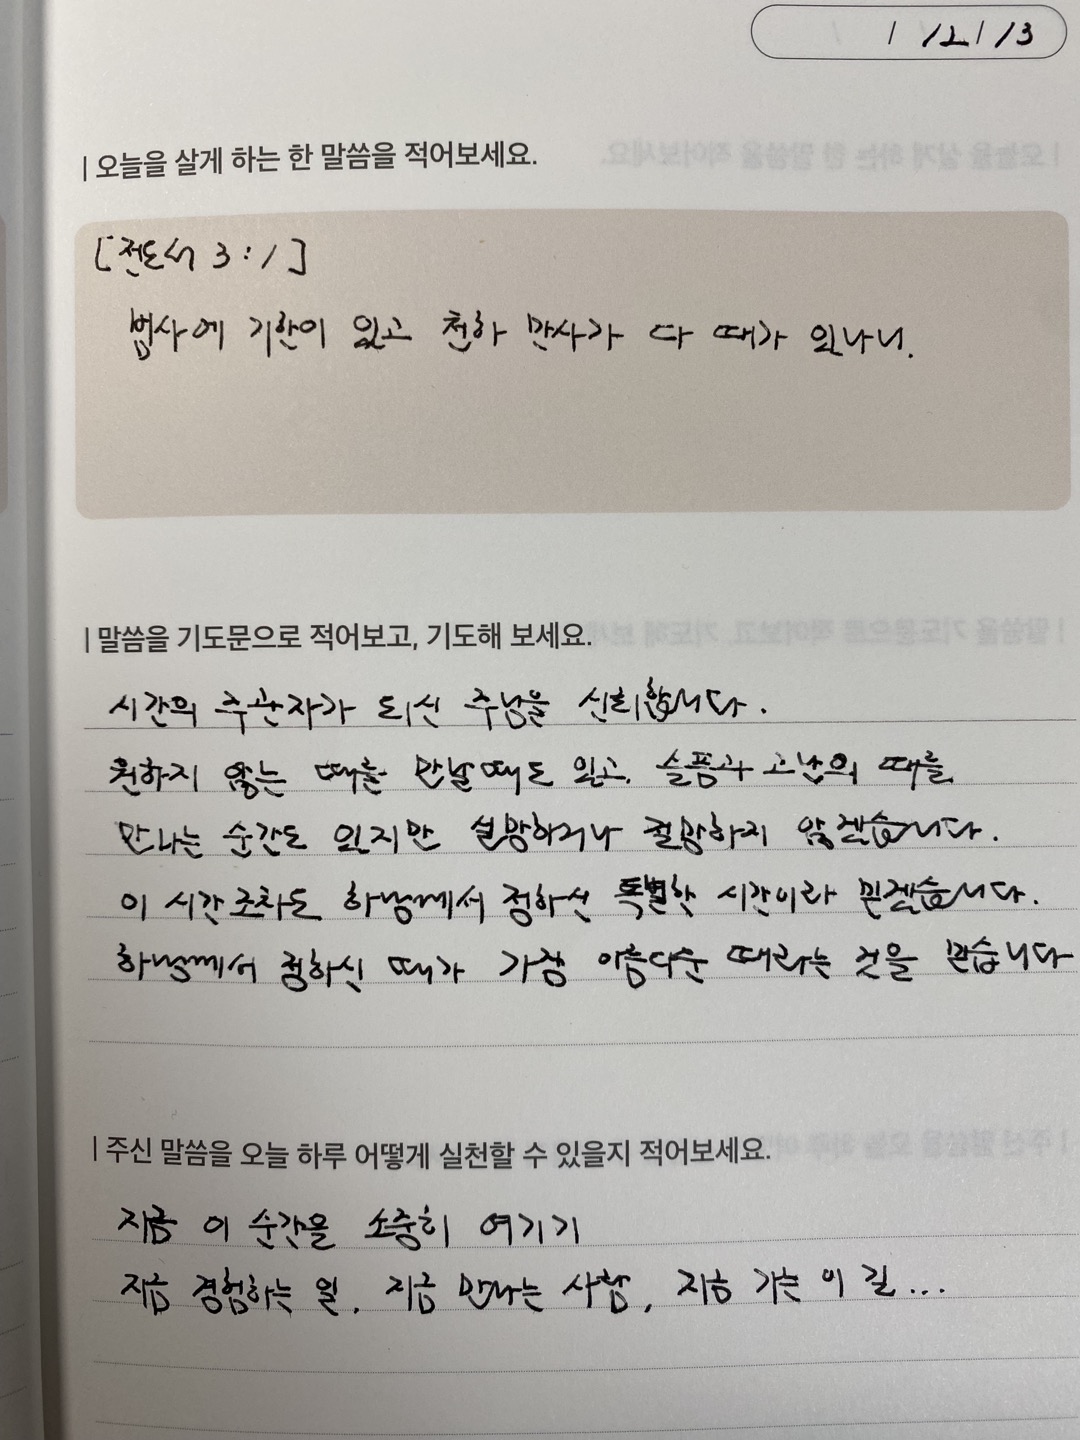 / /2 / /3
| 오늘을 살게 하는 한 말씀을 적어보세요.
[전도서 3:1]
범사에 기한이 있고 천하 만사가 다 때가 있나니.
| 말씀을 기도문으로 적어보고, 기도해 보세요.
시간의 주관자가 되신 주님을 신뢰합니다.
원하지 않는 때를 만날때도 있고. 슬픔과 고난의 때를
만나는 순간도 있지만 실망하거나 절망하지 않겠습니다.
이 시간조차도 하나님께서 정하신 특별한 시간이라 믿겠습니다.
하나님께서 정하신 때가 가장 아름다운 때라는 것을 믿습니다
| 주신 말씀을 오늘 하루 어떻게 실천할 수 있을지 적어보세요.
지금 이 순간을 소중히 여기기
지금 경험하는 일, 지금 만나는 사람, 지금 가는 이 길...